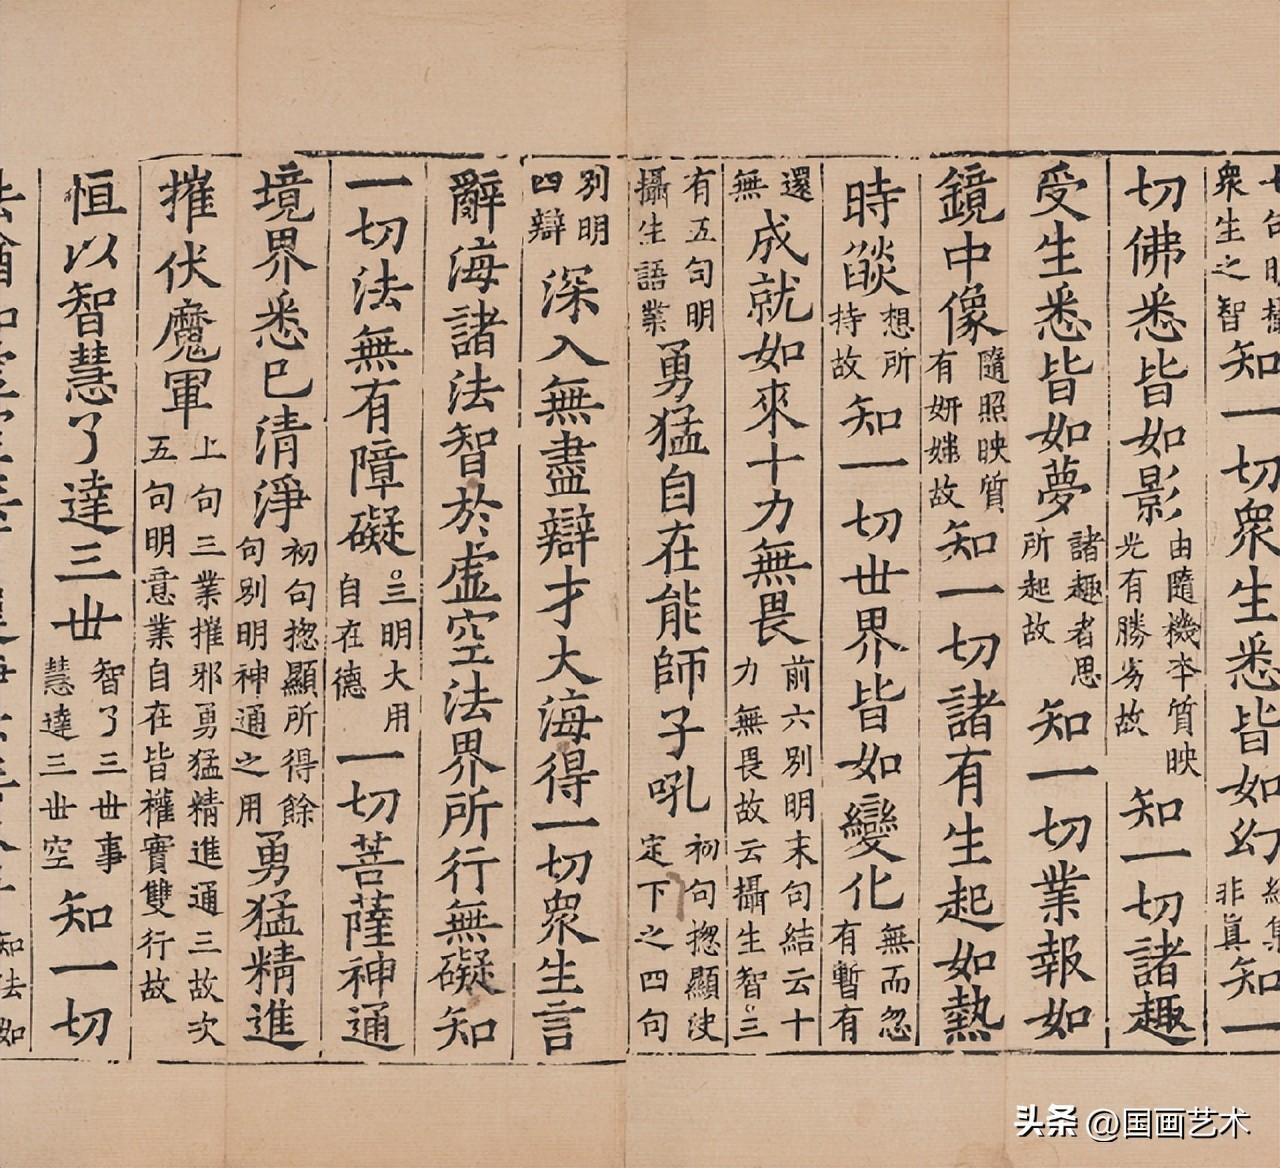 衆生之智知一切衆生悉皆如幻非真知一
切佛悉皆如影由隨機本質映光有勝劣故知一切諸趣
受生悉皆如夢諸趣者思所起故知一切業報如
鏡中像隨照映質有妍媸故知一切諸有生起如熱
時燄想所持故知一切世界皆如變化無而忽有暫有
還無成就如來十力無畏前六別明末句結云十力無畏故云攝生智○三
有五句明攝生語業勇猛自在能師子吼初句揔顯決定下之四句
別明四辯深入無盡辯才大海得一切衆生言
辭海諸法智於虛空法界所行無礙知
一切法無有障礙○三明大用自在德一切菩薩神通
境界悉已清淨初句揔顯所得餘句別明神通之用勇猛精進
摧伏魔軍上句三業摧邪勇猛精進通三故次五句明意業自在皆權實雙行故
恒以智慧了達三世智了三世事慧達三世空知一切
知法如
头条 @国画艺术